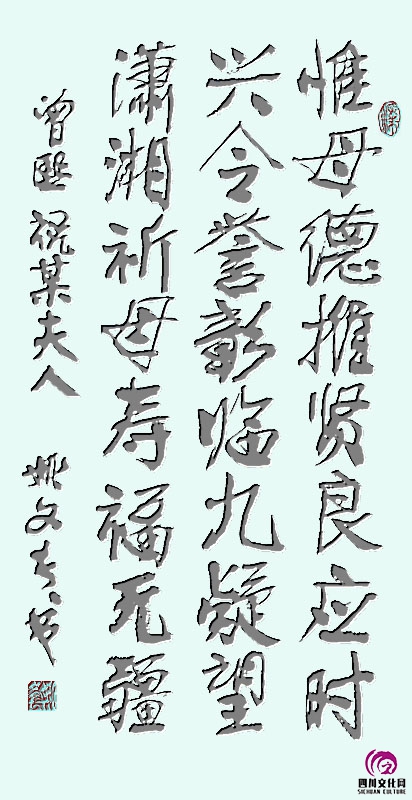 惟母德推贤良应时
兴令誉彰临九疑望
潇湘祈母寿福无疆
曾熙 祝某夫人
姚文书
四川文化网
SICHUAN CULTURE